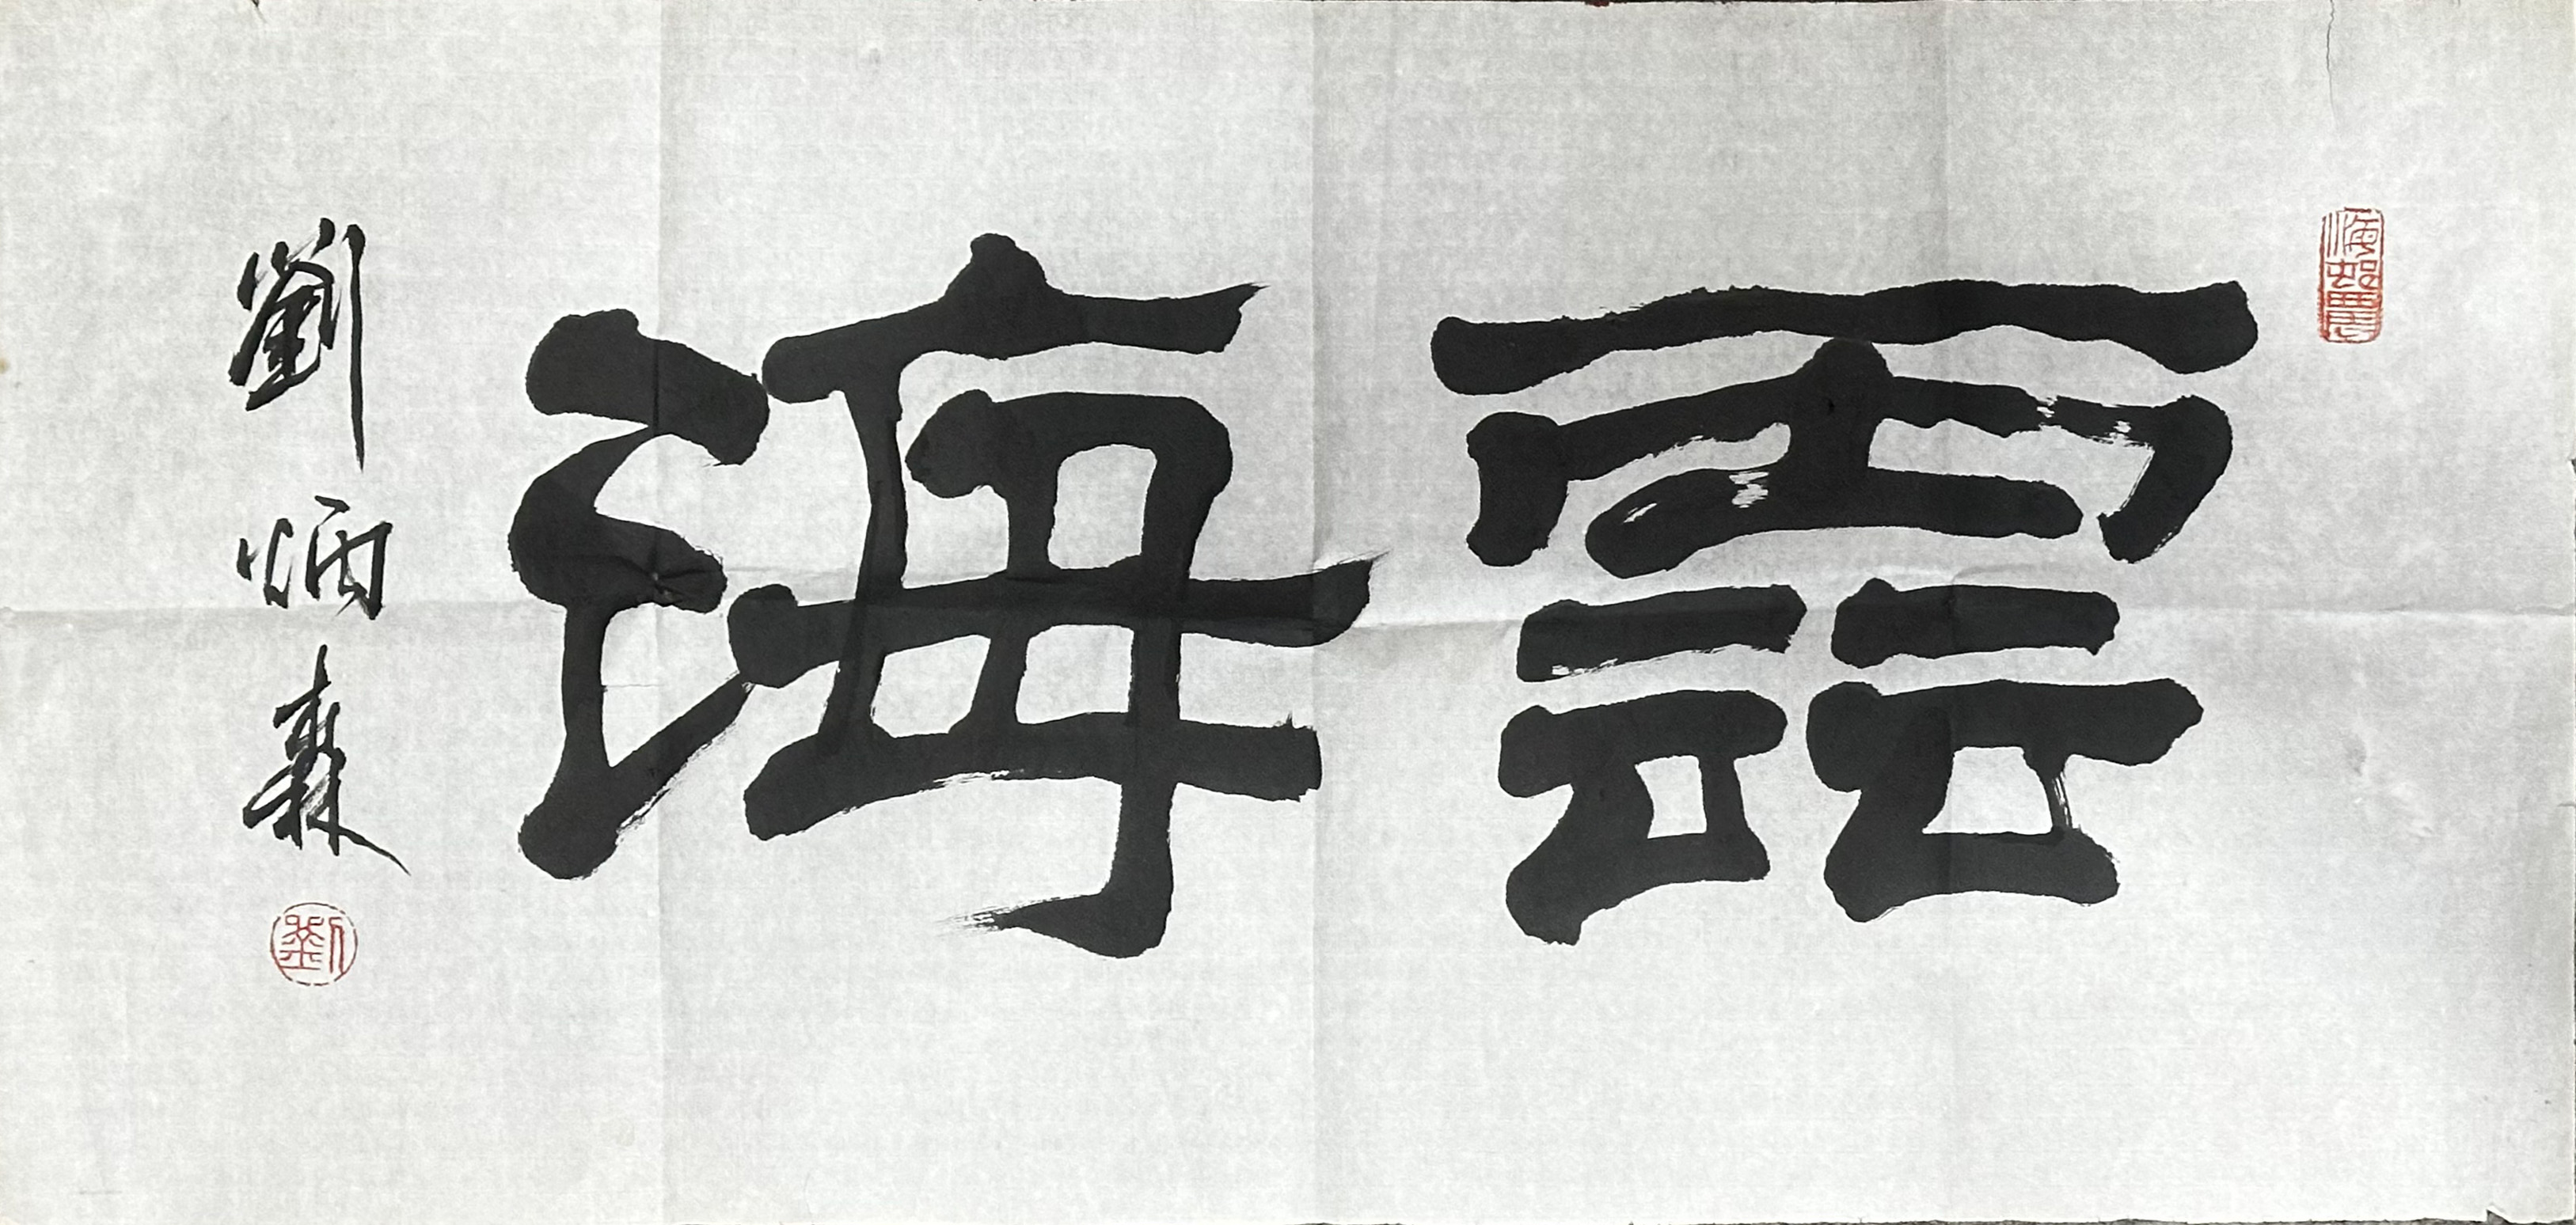 雲海
劉炳森
劉